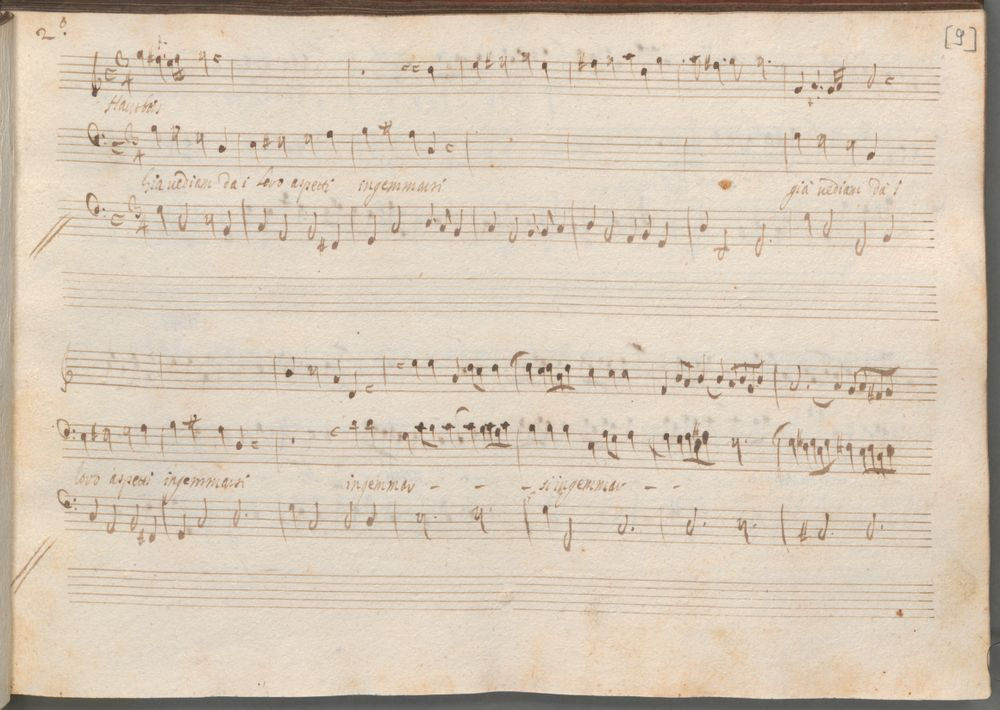 2.º
[9]
Hautbois
Già vedian da i loro aspetti ingemmarsi già vedian da i
loro aspetti ingemmarsi ingemmar - - - si ingemmar - -